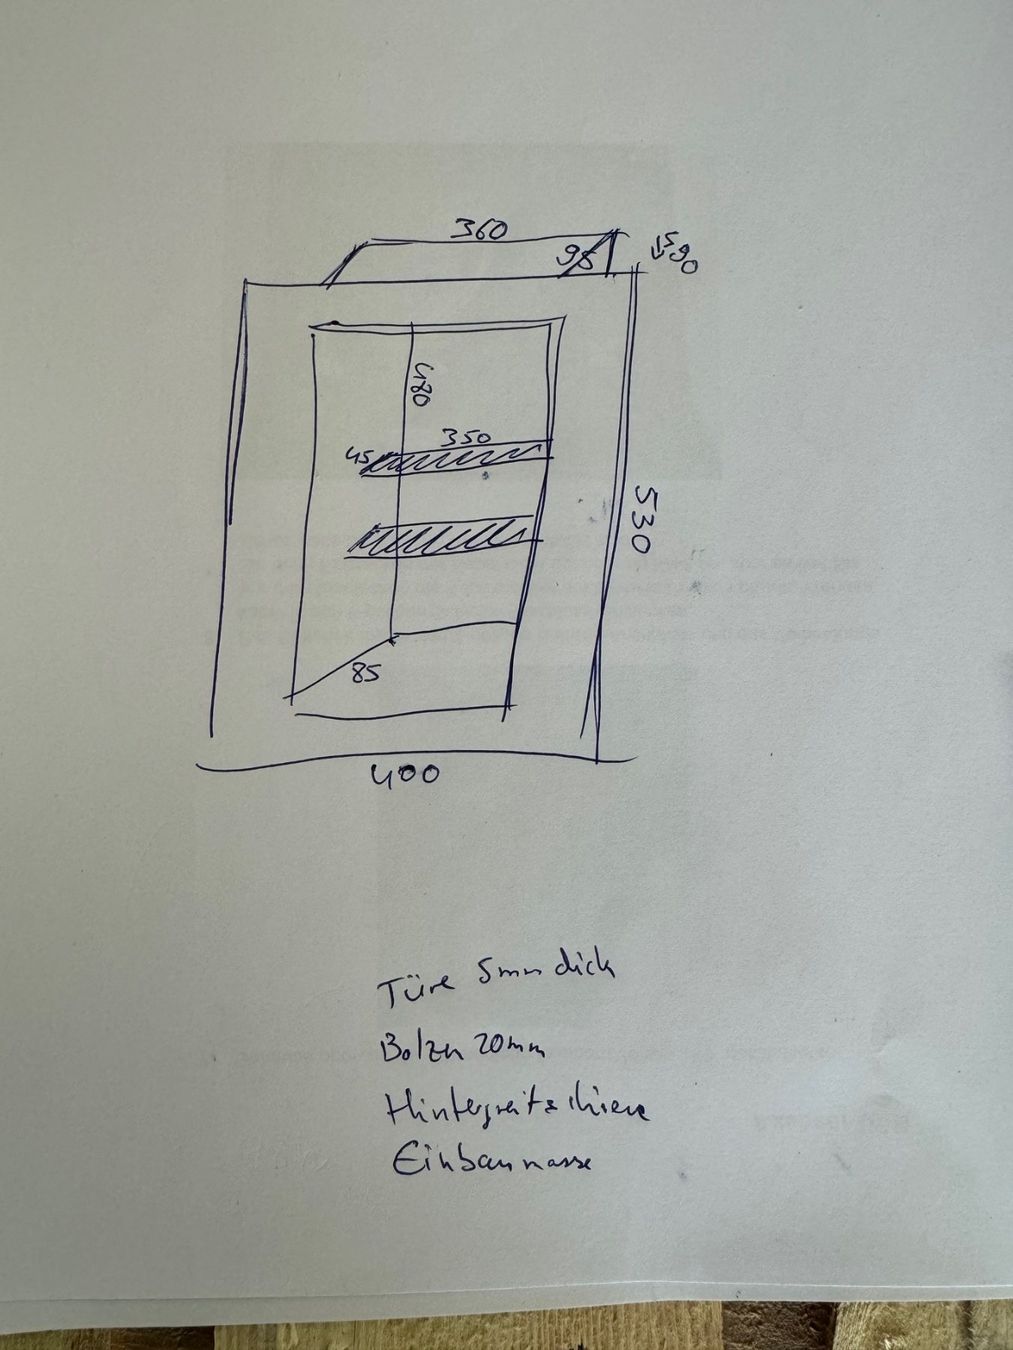 360
95
480
350
45
530
85
400
Türe 5mm dick
Bolzen 20mm
Hintergreifschiene
Einbaumasse